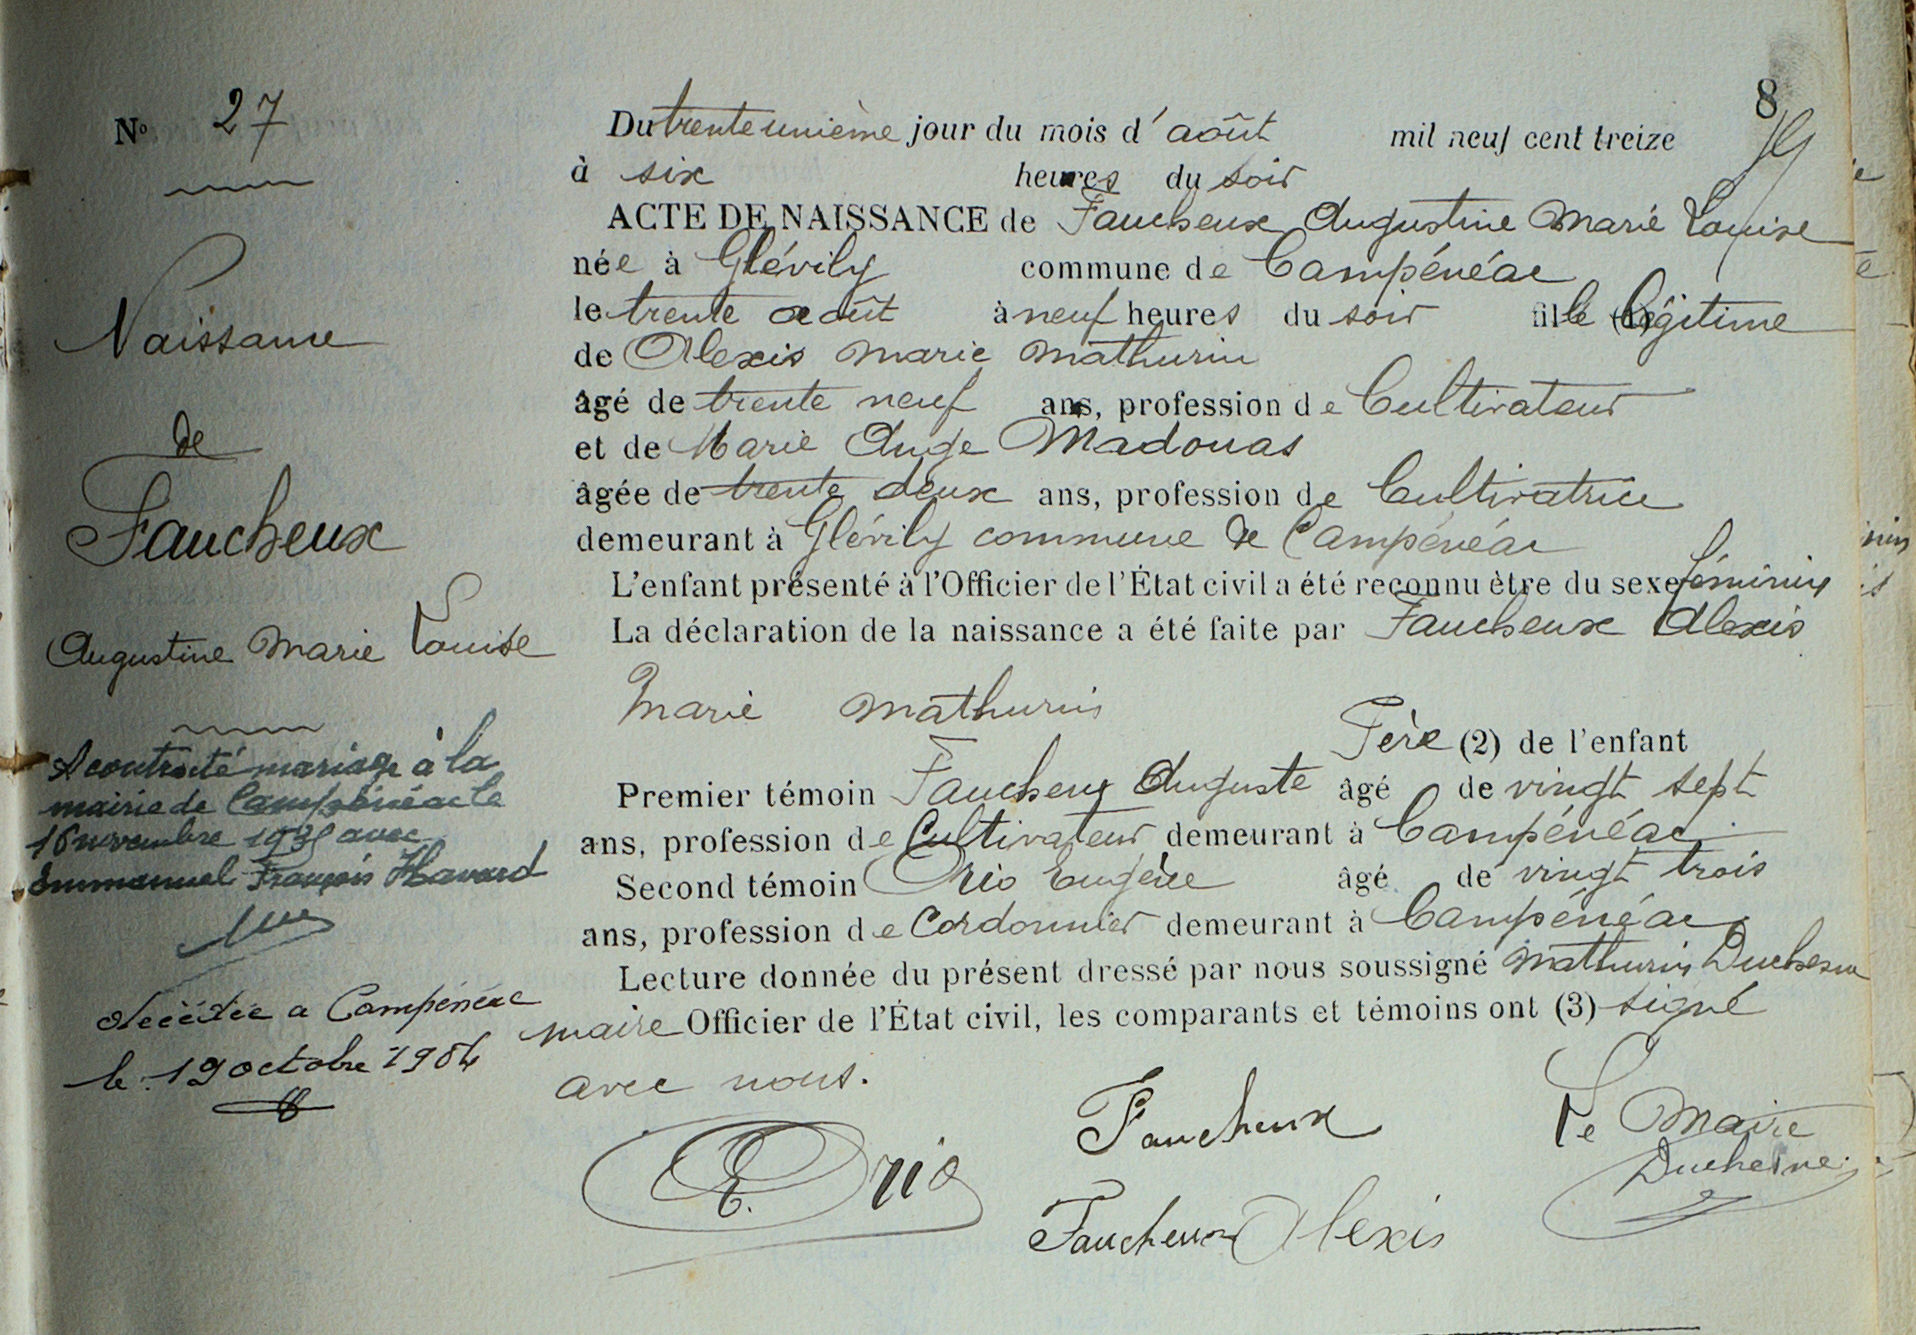 8
N° 27
Du trente unième jour du mois d'août mil neuf cent treize
à six heures du soir
ACTE DE NAISSANCE de Faucheux Augustine Marie Louise
née à Glévily commune de Campénéac
le trente août à neuf heures du soir fille légitime
de Alexis Marie Mathurin
âgé de trente neuf ans, profession de Cultivateur
et de Marie Ange Madouas
âgée de trente deux ans, profession de Cultivatrice
demeurant à Glévily commune de Campénéac
L'enfant présenté à l'Officier de l'État civil a été reconnu être du sexe féminin
La déclaration de la naissance a été faite par Faucheux Alexis
Marie Mathurin
Père (2) de l'enfant
Premier témoin Faucheux Auguste âgé de vingt sept
ans, profession de Cultivateur demeurant à Campénéac
Second témoin Orio Eugène âgé de vingt trois
ans, profession de Cordonnier demeurant à Campénéac
Lecture donnée du présent dressé par nous soussigné Mathurin Duchesne
maire Officier de l'État civil, les comparants et témoins ont (3) signé
avec nous.
E. Orio
Faucheux
Faucheux Alexis
Le Maire
Duchesne
Naissance
de
Faucheux
Augustine Marie Louise
A contracté mariage à la
mairie de Campénéac le
16 novembre avec
Emmanuel François Havard
décédée a Campénéac
le 19 octobre